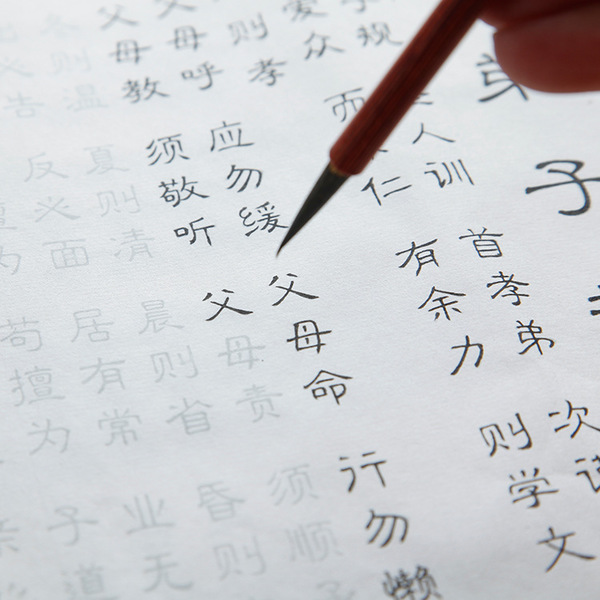 弟子
子规人训首孝弟次
爱众而仁有余力则学文
则孝
父母呼应勿缓父母命行勿懒
父母教须敬听父母责须顺
冬则温夏则清晨则省昏则
必告反必面居有常业无
擅为苟擅为子道
亲